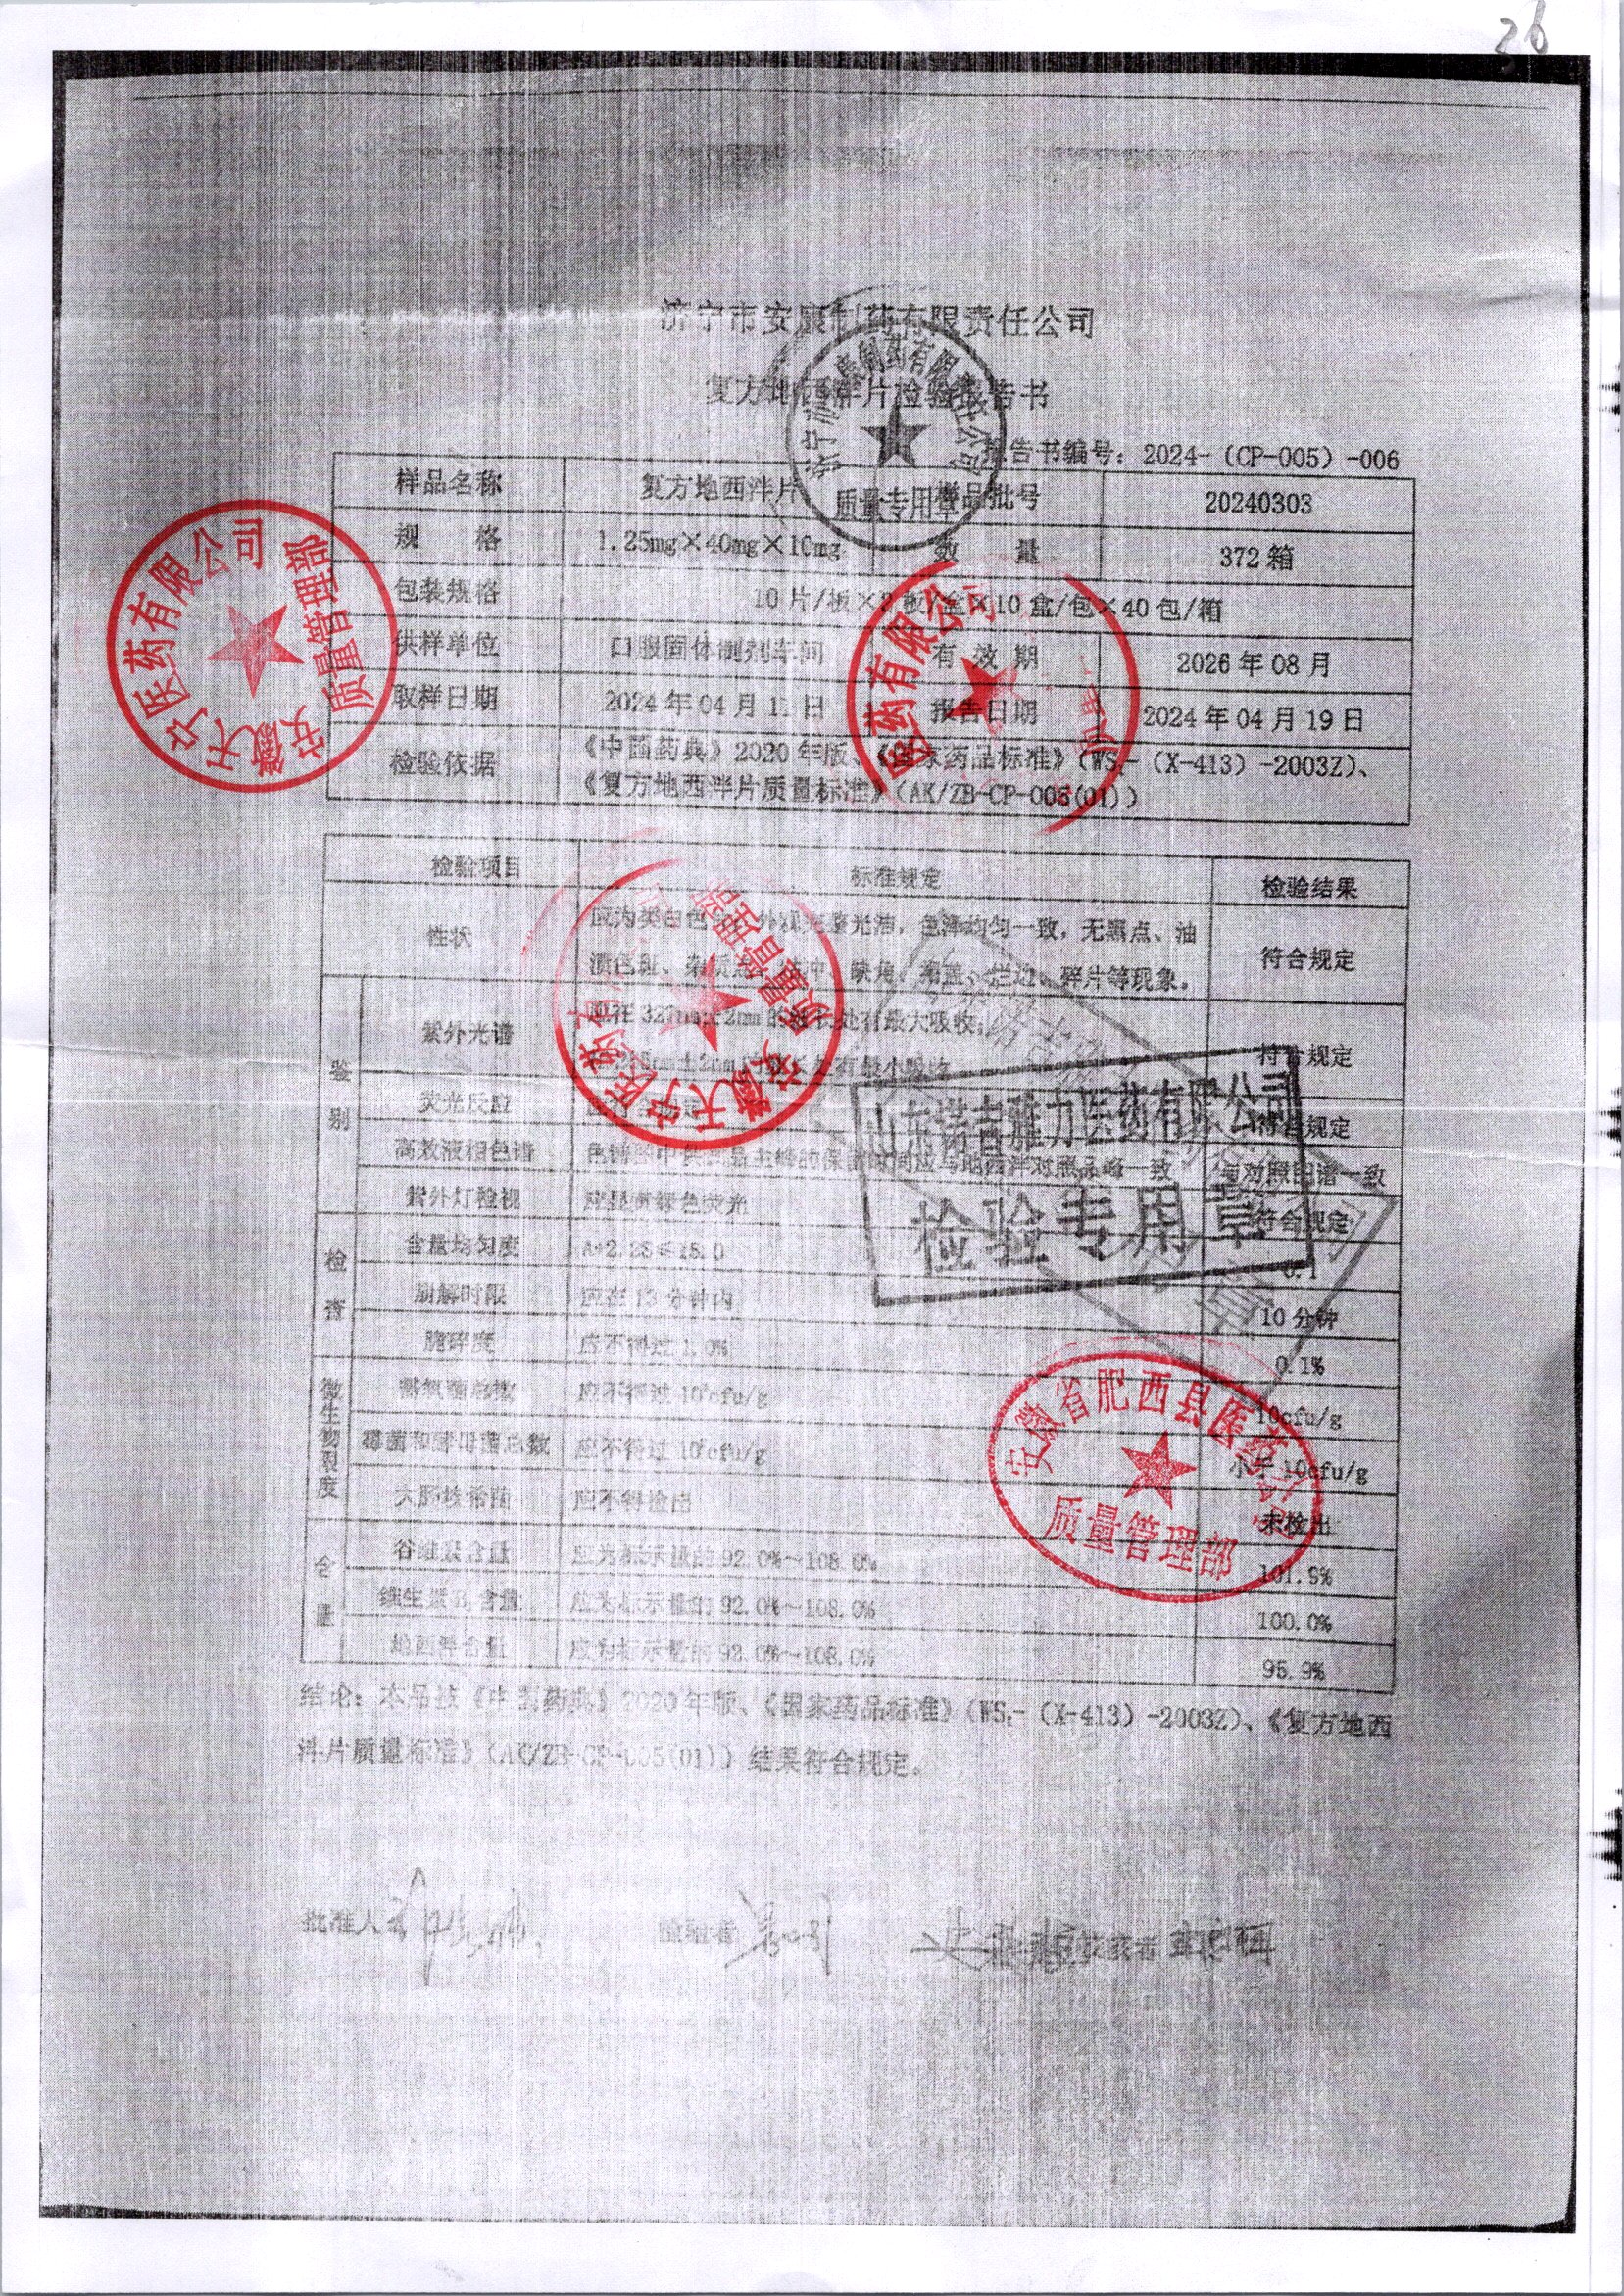 36
济宁市安康制药有限责任公司
复方地西泮片检验报告书
报告书编号：2024-（CP-005）-006
样品名称 复方地西泮片 样品批号 20240303
规 格 1.25mg×40mg×10mg 数 量 372箱
包装规格 10片/板×2板/盒×10盒/包×40包/箱
供样单位 口服固体制剂车间 有 效 期 2026年08月
取样日期 2024年04月11日 报告日期 2024年04月19日
检验依据 《中国药典》2020年版、《国家药品标准》（WS₁-（X-413）-2003Z）、
《复方地西泮片质量标准》（AK/ZB-CP-005(01)）
检验项目 标准规定 检验结果
性状 应为类白色 外观完整光洁，色泽均匀一致，无黑点、油
斑、杂质 缺角 碎片等现象。 符合规定
鉴别 紫外光谱 应在327nm±2nm的波长处有最大吸收；
5nm±2nm 有最小吸收 符合规定
荧光反应 应符合规定 符合规定
高效液相色谱 色谱图中供试品主峰的保留时间应与地西泮对照品峰一致 与对照图谱一致
紫外灯检视 应显黄绿色荧光 符合规定
检查 含量均匀度 A+2.2S≤15.0 6.1
崩解时限 应在15分钟内 10分钟
脆碎度 应不得过1.0% 0.1%
微生物限度 需氧菌总数 应不得过 cfu/g 10cfu/g
霉菌和酵母菌总数 应不得过 cfu/g 小于10cfu/g
大肠埃希菌 应不得检出 未检出
含量 谷维素含量 应为标示量的92.0%～108.0% 101.8%
维生素B₁含量 应为标示量的92.0%～108.0% 100.0%
地西泮含量 应为标示量的 ～108.0% 95.9%
结论：本品按《中国药典》2020年版、《国家药品标准》（WS₁-（X-413）-2003Z）、《复方地西
泮片质量标准》（AK/ZB-CP-005(01)）结果符合规定。
批准人 检验者
济宁市安康制药有限责任公司
质量专用章
安徽天宁医药有限公司
质量管理部
医药有限公司
安徽天宁医药有
质量管理部
山东诺吉雅力医药有限公司
检验专用章
安徽省肥西县医药公司
质量管理部